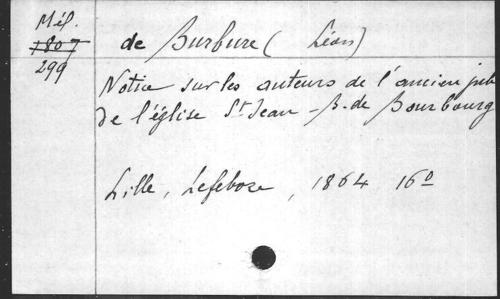 Mél.
1807
299
de Burbure ( Léon)
Notice sur les auteurs de l'ancien jub
de l'église St Jean - B. de Bourbourg
Lille, Lefebvre, 1864 16°